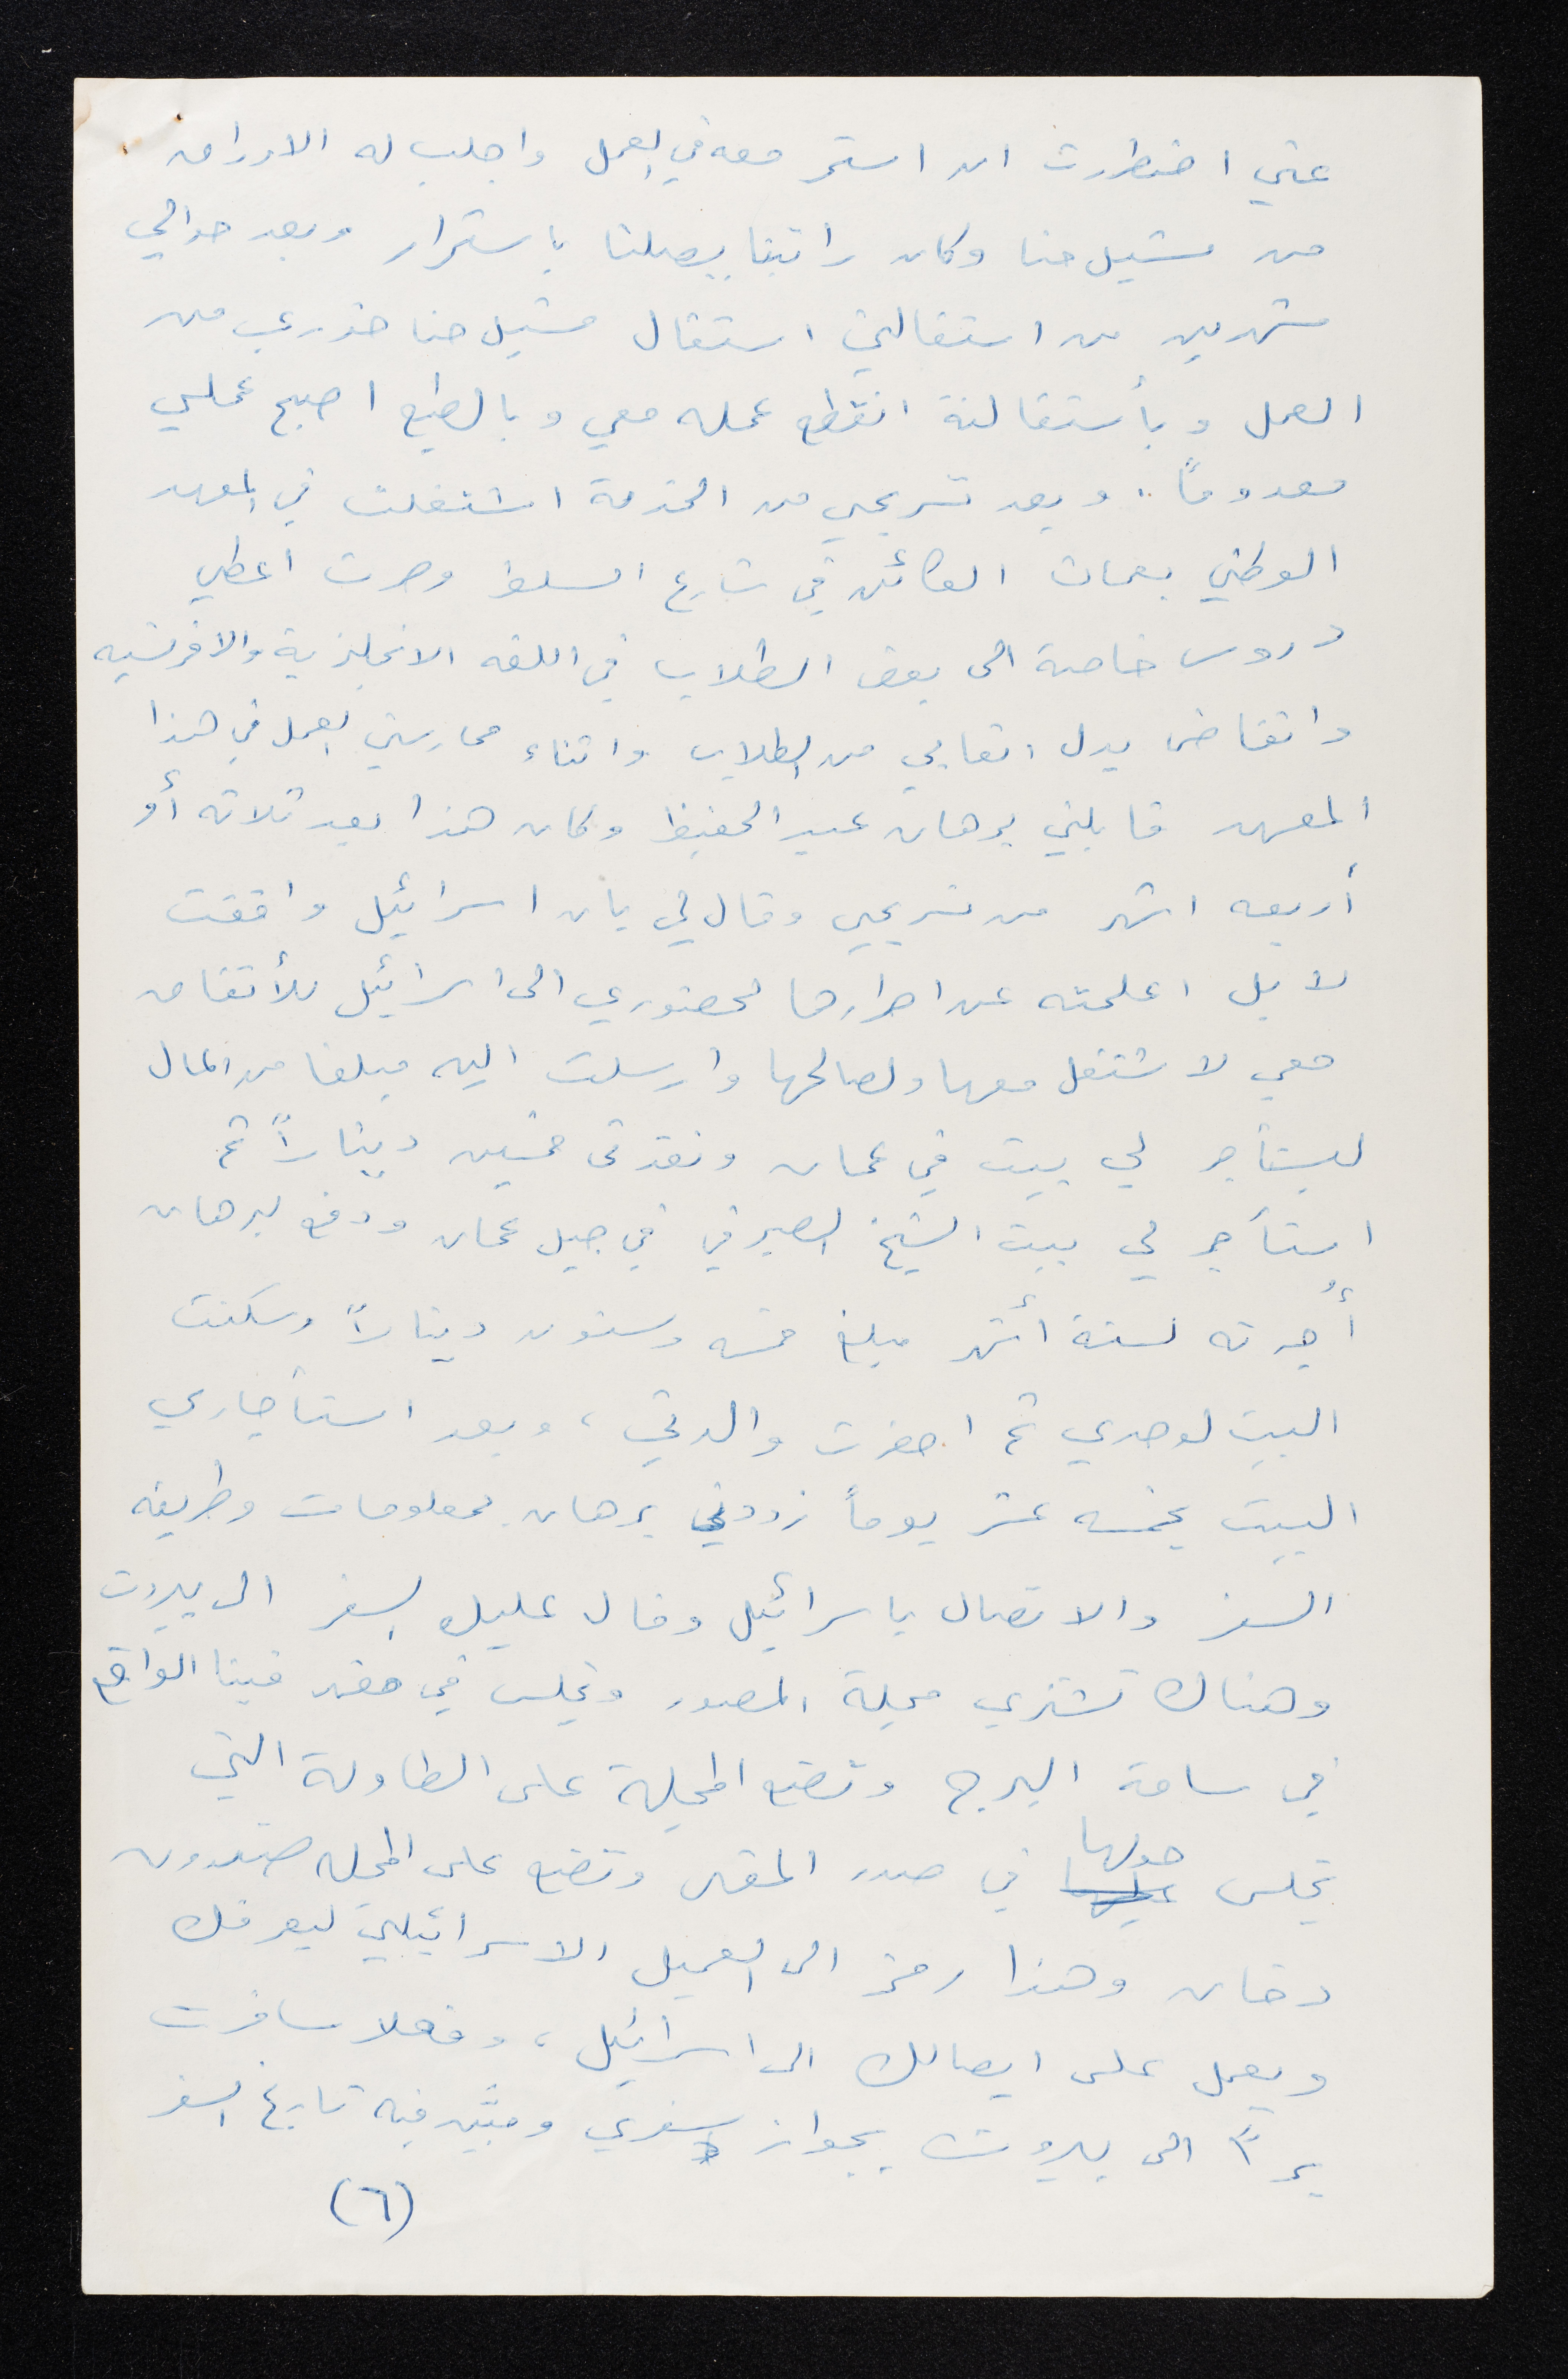 عني اضطررت ان استمر معه في العمل واجلب له الاوراق
من مشيل حنا وكان راتبنا يصلنا باستمرار وبعد حوالي
شهرين من استقالتي استقال مشيل حنا خوري من
العمل وبأستقالته انقطع عمله معي وبالطبع اصبح عملي
معدوماً .. وبعد تسريحي من الخدمة اشتغلت في المعهد
الوطني بعمان الكائن في شارع السلط وصرت اعطي
دروس خاصة الى بعض الطلاب في اللغه الانجليزية والافرنسيه
واتقاضى بدل اتعابي من الطلاب واثناء ممارستي العمل في هذا
المعهد قابلني برهان عبد الحفيظ وكان هذا بعد ثلاثه أو
أربعه اشهر من تسريحي وقال لي بأن اسرائيل وافقت
لا بل اعلمته عن اصرارها لحضوري الى اسرائيل للأتفاق
معي لاشتغل معها ولصالحها وارسلت اليه مبلغا من المال
ليستأجر لي بيت في عمان ونقدني خمسين ديناراً ثم
استأجر لي بيت الشيخ الصيرفي في جبل عمان ودفع برهان
أُجرته لستة أشهر مبلغ خمسه وستون ديناراً وسكنت
البيت لوحدي ثم احضرت والدتي ، وبعد استأجاري
البيت بخمسه عشر يوماً زودني برهان بمعلومات وطريقه
السفر والاتصال باسرائيل وقال عليك السفر الى بيروت
وهناك تشتري مجلة المصور وتجلس في مقهى فينا الواقع
في ساحة البرج وتضع المجلة على الطاولة التي
تجلس حولها في صدر المقهى وتضع على المجله صندوق
دخان وهذا رمز الى العميل الاسرائيلي ليعرفك
ويعمل على ايصالك الى اسرائيل ، وفعلا سافرت
براً الى بيروت بجواز سفري ومبين فيه تاريخ السفر
(٦)